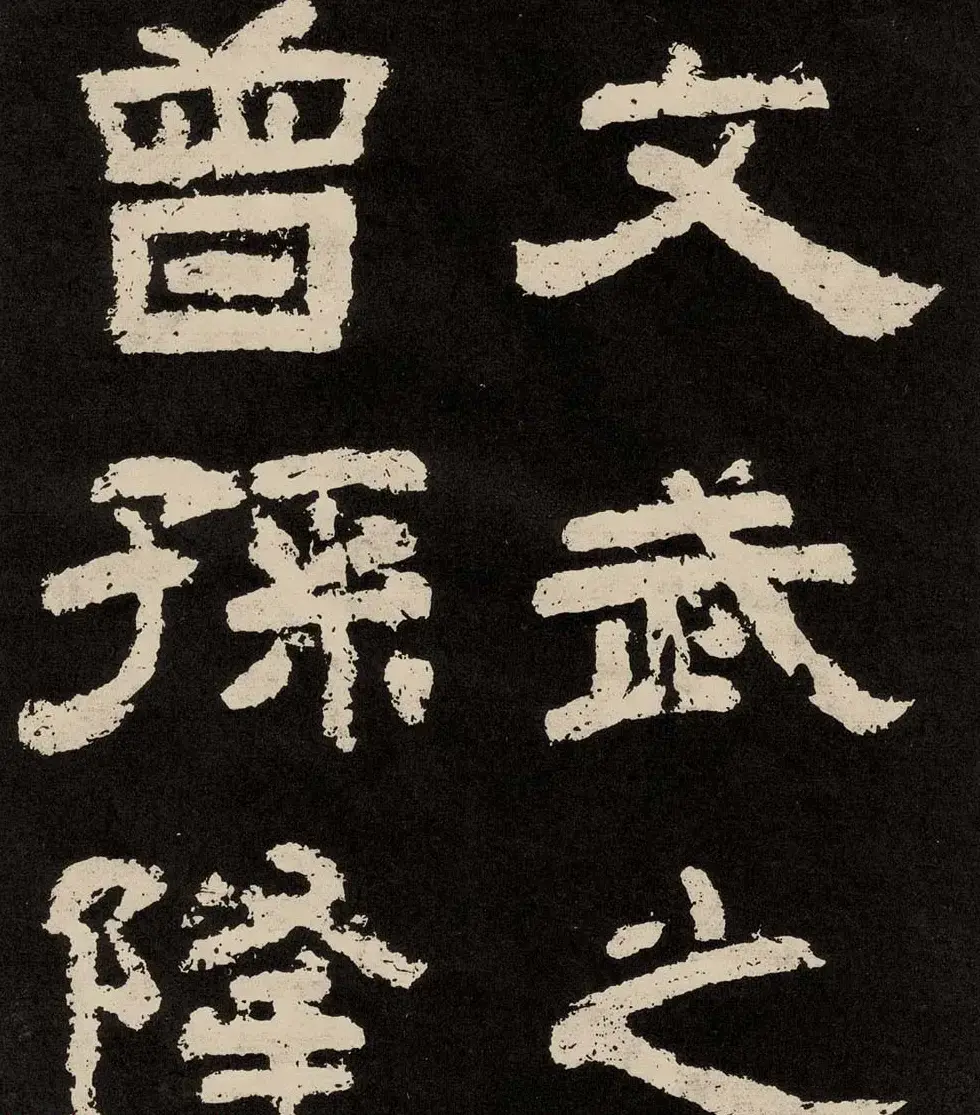 文武之
曾孫隆